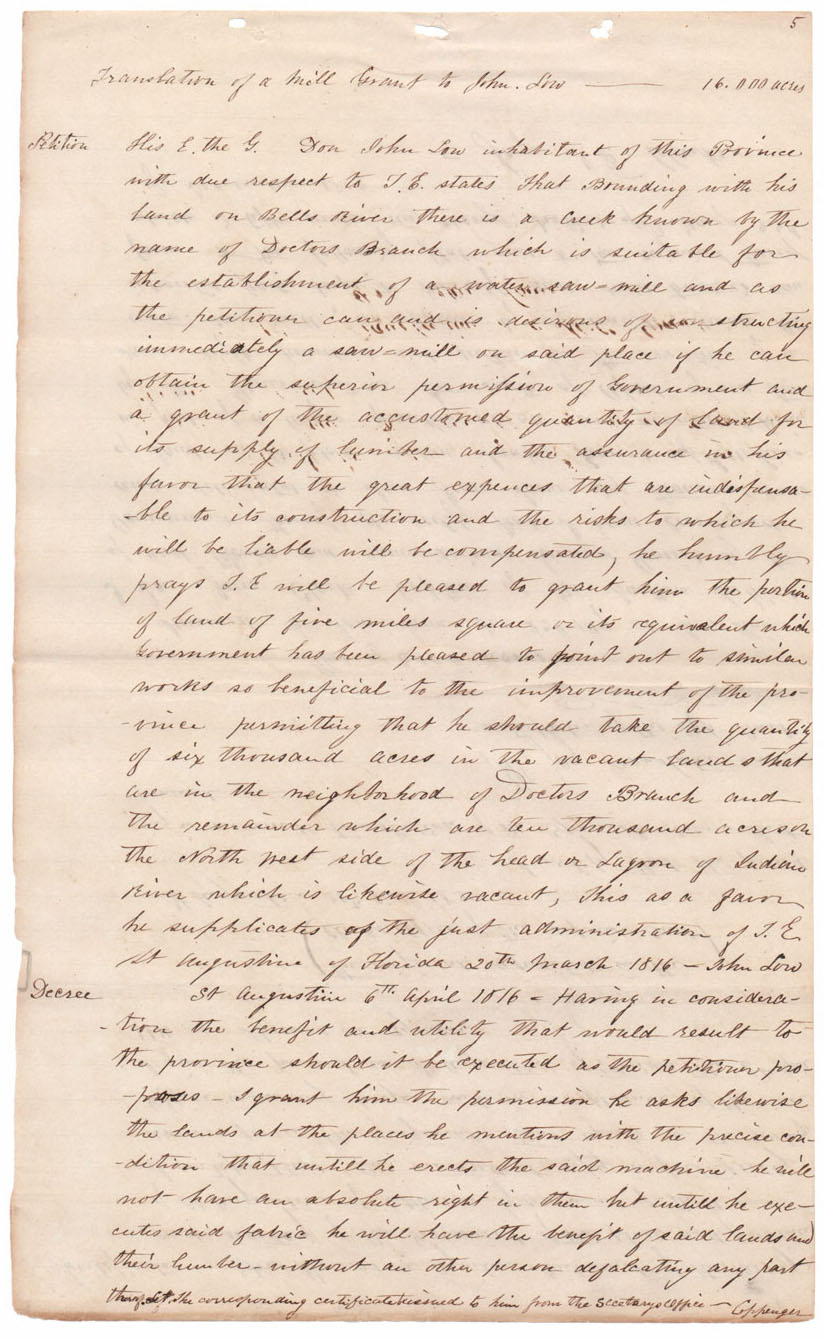 5
Translation of a Mill Grant to John. Low —— 16.000 acres
Petition His E. the G. Don John Low inhabitant of this Province
with due respect to S.E. states that Bounding with his
land on Bells River there is a Creek known by the
name of Doctors Branch which is suitable for
the establishment of a water saw=mill and as
the petitioner can and is desirous of constructing
immediately a saw=mill on said place if he can
obtain the superior permission of Government and
a grant of the accustomed quantity of land for
its supply of lumber and the assurance in his
favor that the great expences that are indispensa-
-ble to its construction and the risks to which he
will be liable will be compensated, he humbly
prays S.E will be pleased to grant him the portion
of land of five miles square or its equivalent which
Government has been pleased to point out to similar
works so beneficial to the improvement of the pro-
-vince permitting that he should take the quantity
of six thousand acres in the vacant lands that
are in the neighborhood of Doctors Branch and
the remainder which are ten thousand acres on
the North West side of the head or Lagoon of Indian
River which is likewise vacant, this as a favor
he supplicates of the just administration of S.E.
St Augustine of Florida 20th March 1816 — John Low
Decree St Augustine 6th April 1816 = Having in considera-
-tion the benefit and utility that would result to
the province should it be executed as the petitioner pro-
-poses - I grant him the permission he asks likewise
the lands at the places he mentions with the precise con-
-dition that untill he erects the said machine he will
not have an absolute right in them but untill he exe-
cutes said fabric he will have the benefit of said lands and
their lumber - without an other person defalcating any part
the corresponding certificate issued to him from the Secetarys Office — Coppenger